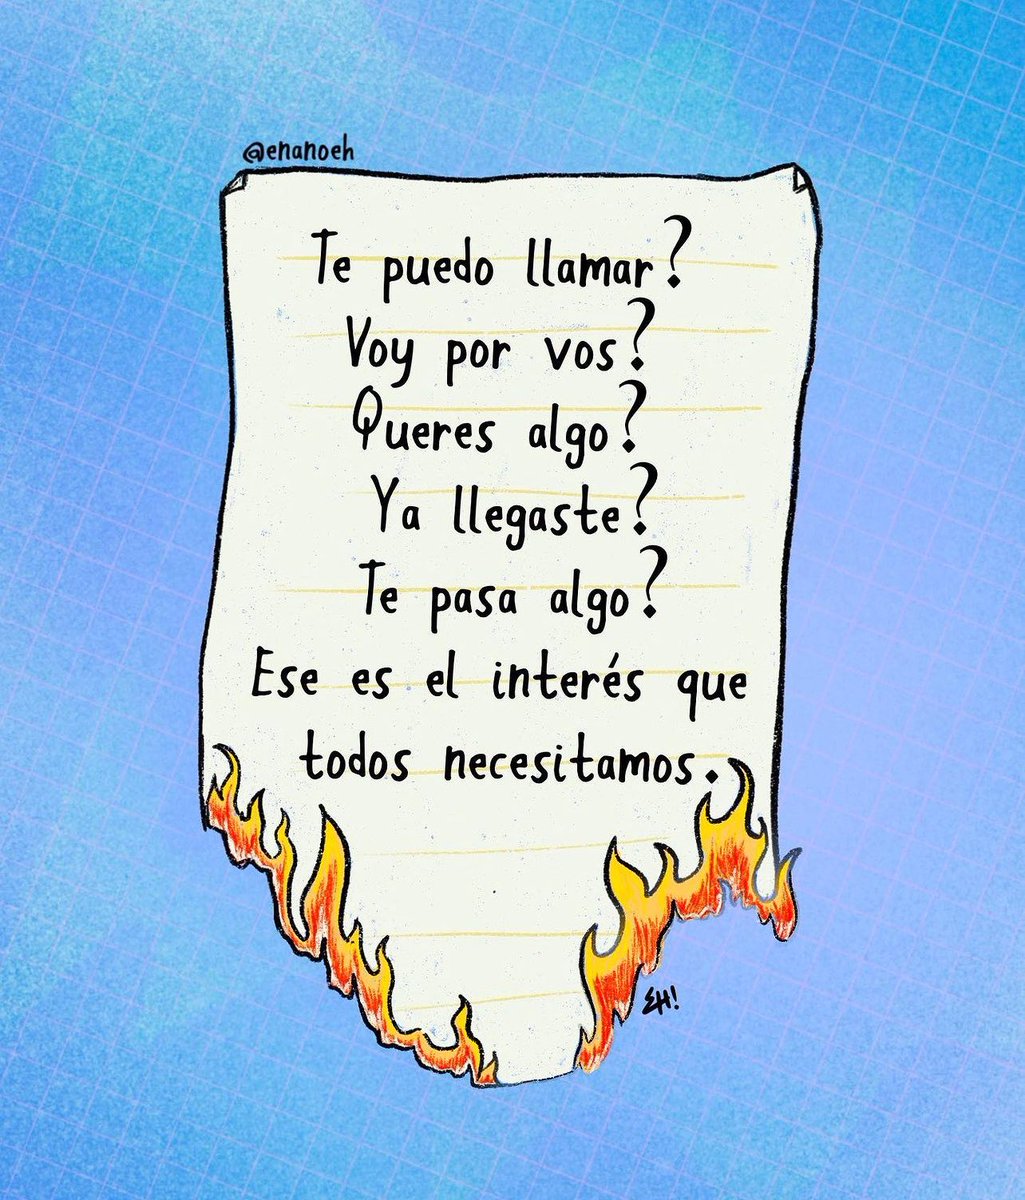 @enanoeh
Te puedo llamar?
Voy por vos?
Queres algo?
Ya llegaste?
Te pasa algo?
Ese es el interés que
todos necesitamos.
EH!